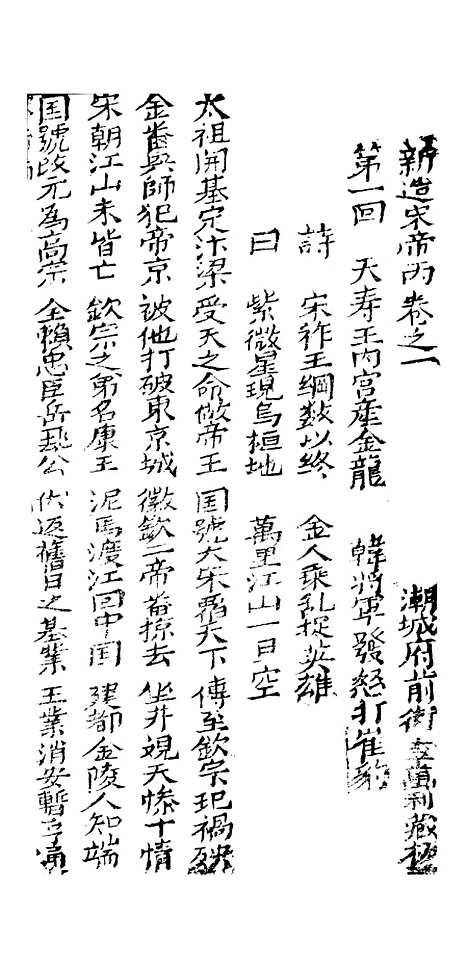 新造宋帝丙卷之一 潮城府前街 萬利藏
第一回 天寿王内宮産金龍 韓將軍發怒打崔
詩 宋祚王綱数以終 金人乘乱捉英雄
曰 紫微星現烏桓地 萬里江山一旦空
太祖開基定汴梁 受天之命做帝王 国號大宋覇天下 傳至欽宗玘禍殃
金畨興師犯帝京 被他打破東京城 徽欽二帝畨掠去 坐井覌天惨十情
宋朝江山未皆亡 欽宗之弟名康王 泥馬渡江回中国 建都金陵人知端
国號改元為高宗 全賴忠臣岳飛公 伏返舊日之基業 王業消安暫